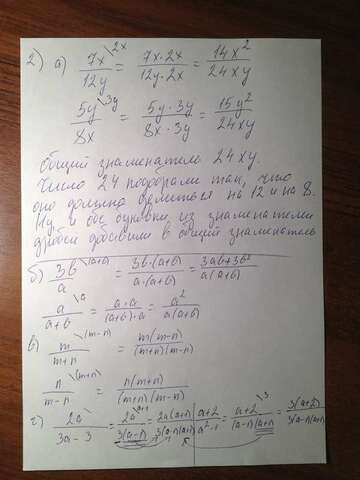 2) а) 7x\2x / 12y = 7x·2x / 12y·2x = 14x² / 24xy
5y\3y / 8x = 5y·3y / 8x·3y = 15y² / 24xy
Общий знаменатель 24xy.
Число 24 подобрали так, что
оно должно делиться на 12 и на 8.
Ну и обе буковки из знаменателя
дробей добавили в общий знаменатель
б) 3b\(a+b) / a = 3b·(a+b) / a·(a+b) = 3ab+3b² / a(a+b)
a\a / a+b = a·a / (a+b)·a = a² / a(a+b)
в) m\(m-n) / m+n = m(m-n) / (m+n)(m-n)
n\(m+n) / m-n = n(m+n) / (m+n)(m-n)
г) 2a / 3a-3 = 2a\a+1 / 3(a-1) = 2a(a+1) / 3(a-1)(a+1) | a+2 / a²-1 = a+2\3 / (a-1)(a+1) = 3(a+2) / 3(a-1)(a+1)